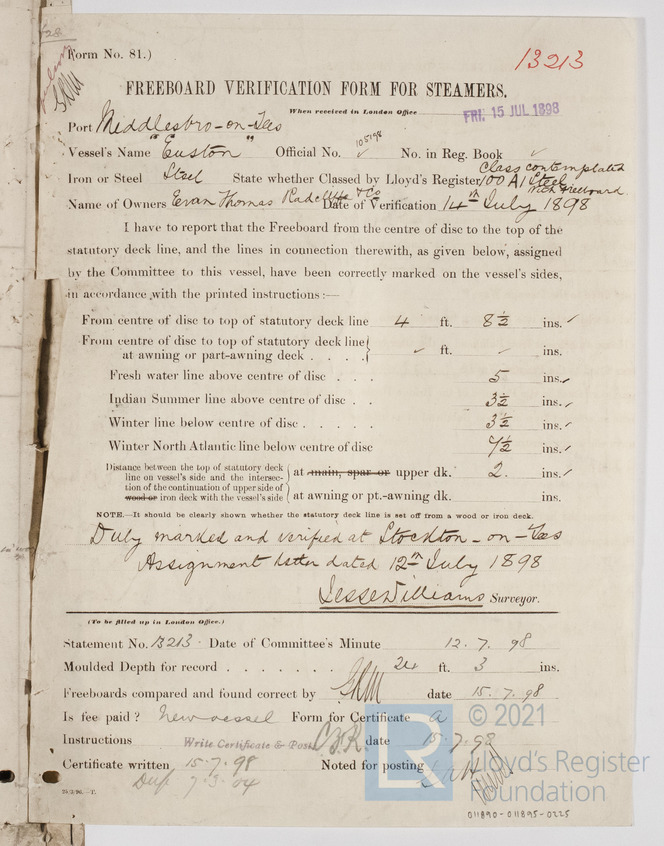 Form No. 81.)
13213
FREEBOARD VERIFICATION FORM FOR STEAMERS.
When received in London Office
FRI. 15 JUL 1898
Port Middlesbro-on-Tees
105198
Vessel's Name "Euston" Official No. ✓ No. in Reg. Book ✓
Class contemplated
Iron or Steel Steel State whether Classed by Lloyd's Register 100 A1 Steel
with freeboard
Name of Owners Evan Thomas Radcliffe & Co Date of Verification 14th July 1898
I have to report that the Freeboard from the centre of disc to the top of the
statutory deck line, and the lines in connection therewith, as given below, assigned
by the Committee to this vessel, have been correctly marked on the vessel's sides,
in accordance with the printed instructions:—
From centre of disc to top of statutory deck line 4 ft. 8½ ins. ✓
From centre of disc to top of statutory deck line
at awning or part-awning deck . . . . ✓ ft. ✓ ins.
Fresh water line above centre of disc . . . 5 ins. ✓
Indian Summer line above centre of disc . . 3½ ins. ✓
Winter line below centre of disc . . . . . 3½ ins. ✓
Winter North Atlantic line below centre of disc 7½ ins. ✓
Distance between the top of statutory deck
line on vessel's side and the intersec-
tion of the continuation of upper side of
wood or iron deck with the vessel's side
at main, spar or upper dk. 2. ins. ✓
at awning or pt.-awning dk. ins.
NOTE.—It should be clearly shown whether the statutory deck line is set off from a wood or iron deck.
Duly marked and verified at Stockton-on-Tees
Assignment letter dated 12th July 1898
Jesse Williams Surveyor.
(To be filled up in London Office.)
Statement No. 13213 Date of Committee's Minute 12.7.98
Moulded Depth for record . . . . . . . 24 ft. 3 ins.
Freeboards compared and found correct by date 15.7.98
Is fee paid? New vessel Form for Certificate a
Instructions Write Certificate & Post date 15.7.98
Certificate written 15.7.98 Noted for posting
Dup 7.3.04
© 2021
Lloyd's Register
Foundation
011890-011895-0225